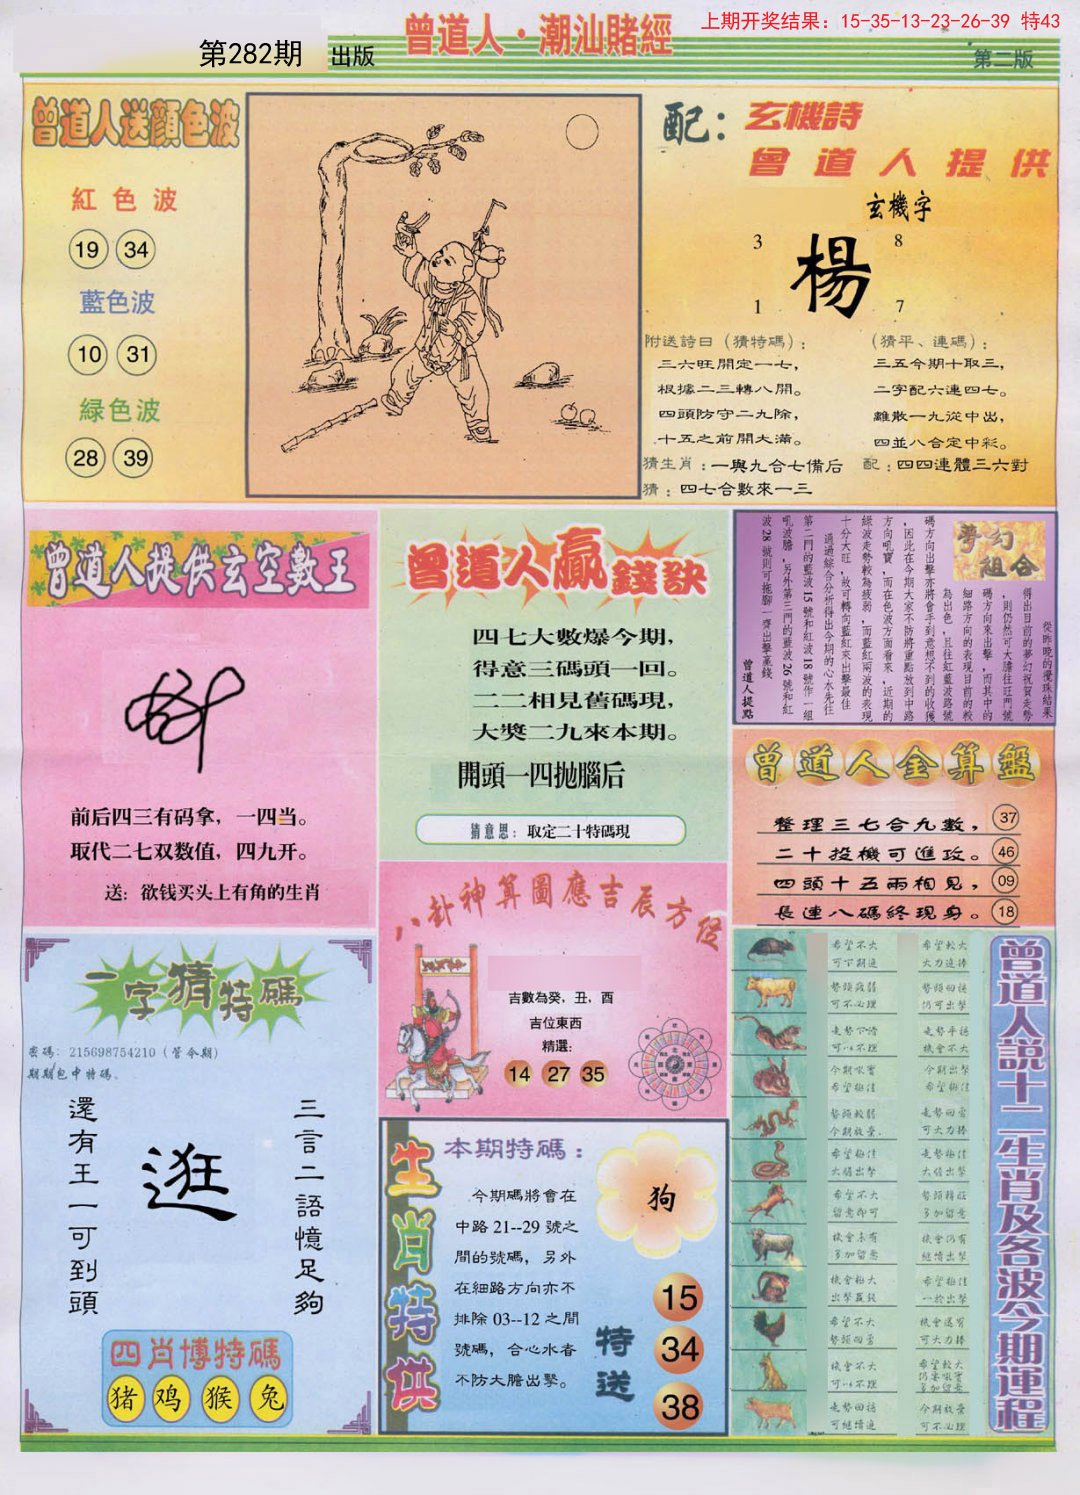 上期开奖结果：15-35-13-23-26-39 特43
第282期 出版
曾道人·潮汕賭經
第二版
曾道人送顏色波
紅色波
19 34
藍色波
10 31
緑色波
28 39
配：玄機詩
曾道人提供
玄機字
3 8
楊
1 7
附送詩日（猜特碼）：
三六旺開定一七，
根據二三轉八開。
四頭防守二九除，
十五之前開大滿。
（猜平、連碼）：
三五今期十取三，
二字配六連四七。
離散一九從中出，
四並八合定中彩。
猜生肖：一與九合七備后
配：四四連體三六對
猜：四七合數來一三
曾道人提供玄空數王
前后四三有码拿，一四当。
取代二七双数值，四九开。
送：欲钱买头上有角的生肖
曾道人贏錢訣
四七大數爆今期，
得意三碼頭一回。
二二相見舊碼現，
大獎二九來本期。
開頭一四拋腦后
猜意思：取定二十特碼現
夢幻組合
從昨晚的攪珠結果
得出目前的夢幻祝賀走勢
，則仍然可大膽往旺門號
碼方向來出擊，而其中的
細路方向的表現目前的較
為出色，且往紅藍波路號
碼方向出擊亦將會手到意想不到的收獲
，因此在今期大家不防將重點放到中路
方向吼寶，而在色波方面看來，近期的
綠波走勢較為疲弱，而藍紅兩波的表現
十分大旺，故可轉向藍紅來出擊最佳
通過綜合分析得出今期的心水先往
第二門的藍波15號和紅波18號作一組
吼波膽，另外第三門的藍波26號和紅
波28號則可拖腳一齊出擊贏錢
曾道人提點
曾道人金算盤
整理三七合九數， 37
二十投機可進攻。 46
四頭十五兩相見， 09
長連八碼終現身。 18
八卦神算圖應吉辰方位
吉數為癸，丑，酉
吉位東西
精選：
14 27 35
一字猜特碼
密碼：215698754210（管今期）
期期包中特碼。
三言二語憶足夠
逛
還有王一可到頭
四肖博特碼
猪 鸡 猴 兔
生肖特供
本期特碼：
今期碼將會在
中路 21--29 號之
間的號碼，另外
在細路方向亦不
排除 03--12 之間
號碼，合心水者
不防大膽出擊。
狗
特送
15
34
38
曾道人說十二生肖及各波今期運程
希望不大
可下期追
希望較大
大力追捧
勢頭疲弱
可不必理
勢頭回揚
仍可出擊
走勢平穩
機會不大
今期吼實
希望極佳
今期出擊
希望極佳
勢頭較弱
今期放棄。
走勢回雷
可大力捧
希望極佳
大膽出擊
走勢極佳
大膽出擊
希望不大
留意即可
多加留意
機會未有
多加留意
機會仍有
繼續出擊
機會極大
出擊贏錢
希望極佳
一於出擊
希望不大
可大力捧
機會不大
可以不理
希望較大
多加留意
走勢回揚
可繼續追
今期放棄
可不必理